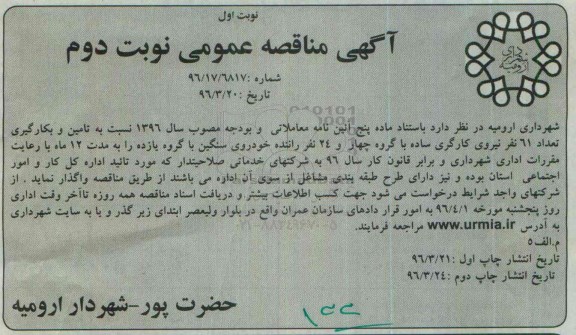 نوبت اول
آگهی مناقصه عمومی نوبت دوم
شماره :۹۶/۱۷/۶۸۱۷
تاریخ :۹۶/۳/۲۰
شهرداری ارومیه در نظر دارد باستناد ماده پنج آئین نامه معاملاتی و بودجه مصوب سال ۱۳۹۶ نسبت به تامین و بکارگیری
تعداد ۶۱ نفر نیروی کارگری ساده با گروه چهار و ۲۴ نفر راننده خودروی سنگین با گروه یازده را به مدت ۱۲ ماه با رعایت
مقررات اداری شهرداری و برابر قانون کار سال ۹۶ به شرکتهای خدماتی صلاحیتدار که مورد تائید اداره کل کار و امور
اجتماعی استان بوده و نیز دارای طرح طبقه بندی مشاغل از سوی آن اداره می باشند از طریق مناقصه واگذار نماید . از
شرکتهای واجد شرایط درخواست می شود جهت کسب اطلاعات بیشتر و دریافت اسناد مناقصه همه روزه تاآخر وقت اداری
روز پنجشنبه مورخه ۹۶/۴/۱ به امور قرار دادهای سازمان عمران واقع در بلوار ولیعصر ابتدای زیر گذر و یا به سایت شهرداری
به آدرس www.urmia.ir مراجعه فرمایند.
م.الف۵
تاریخ انتشار چاپ اول :۹۶/۳/۲۱
تاریخ انتشار چاپ دوم :۹۶/۳/۲۴
حضرت پور-شهردار ارومیه